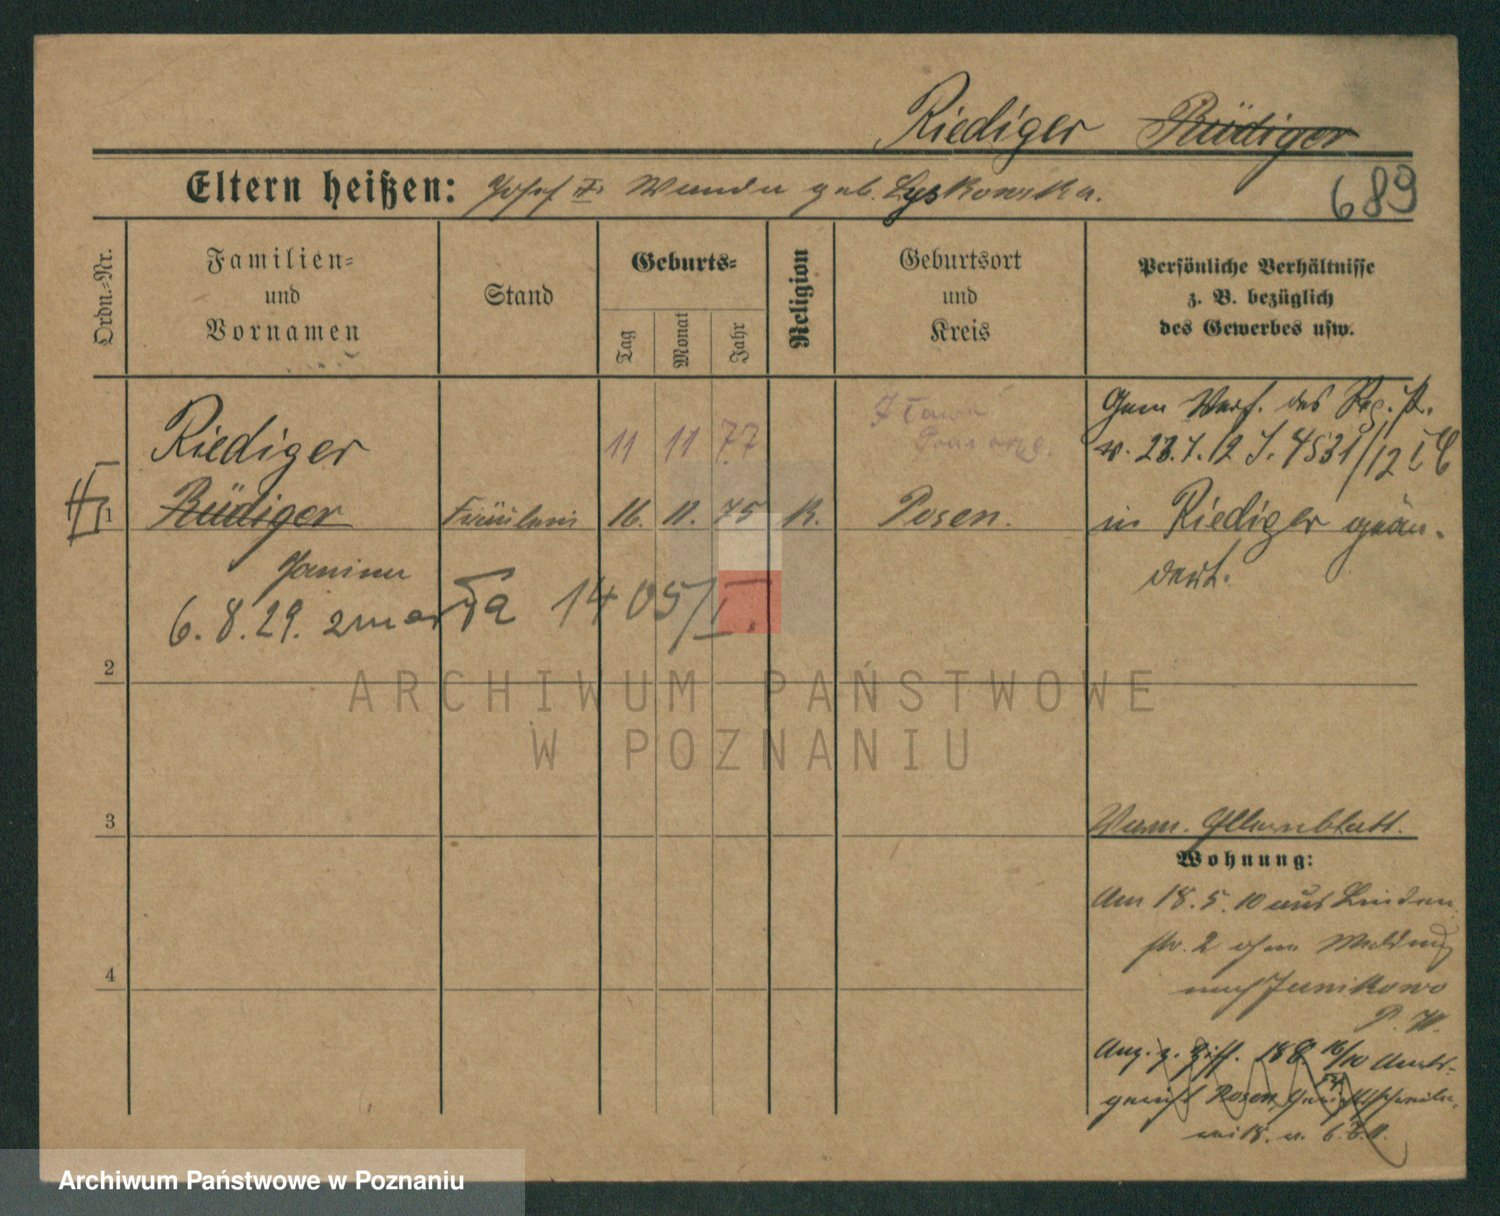 Riediger Rüdiger
689
Eltern heißen: Josef u. Wanda geb. Lyskowska.
Ordn.-Nr.
Familien-
und
Vornamen
Stand
Geburts-
Tag
Monat
Jahr
Religion
Geburtsort
und
Kreis
Persönliche Verhältnisse
z. B. bezüglich
des Gewerbes usw.
Riediger
11 11 77
Gem Verf. des Reg. Pr.
v. 23.7.12 J. 4531/12 I C
1 Rüdiger Fräulein 16. 11. 75 K. Posen. in Riediger geän-
dert.
Janina
6.8.29. zmarła 1405/I.
2
ARCHIWUM PAŃSTWOWE
W POZNANIU
3
Elternblatt.
Wohnung:
Am 18.5.10 aus Linden
str. 2 ohne Meldung
nach Junikowo
P. W.
4
Ang. z. Ziff. 188 16/10 Amts-
gericht Posen
Archiwum Państwowe w Poznaniu